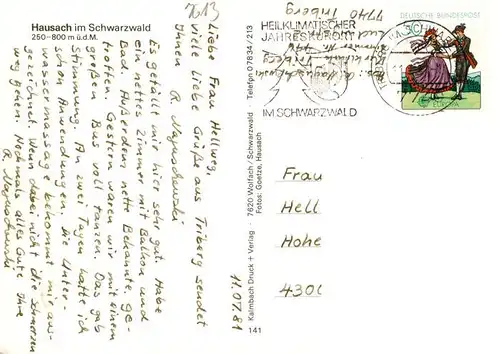 Hausach im Schwarzwald
250-800 m ü.d.M.
7613
Liebe Frau Hellweg,
viele liebe Grüße aus Triberg sendet
Ihnen R. Majusdowski
Es gefällt mir hier sehr gut. Habe
ein nettes Zimmer mit Balkon und
Bad. Außerdem nette Bekannte, ge-
troffen. Gestern waren wir mit einem
großen Bus voll tanzen. Das gab
Stimmung. An zwei Tagen hatte ich
schon Anwendungen. Die Unter-
wassermassage bekommt mir aus-
gezeichnet. Wenn dabei nicht die Schmerzen
weg gehen. Nochmals alles Gute Ihre
R. Majusdowski
11.07.81
Kalmbach Druck + Verlag · 7620 Wolfach/Schwarzwald Telefon 07834/213
Fotos: Goetze, Hausach
141
HEILKLIMATISCHER
JAHRESKURORT
IM SCHWARZWALD
7740
Triberg
DEUTSCHE BUNDESPOST
EUROPA
Frau
Hell
Hohe
4300